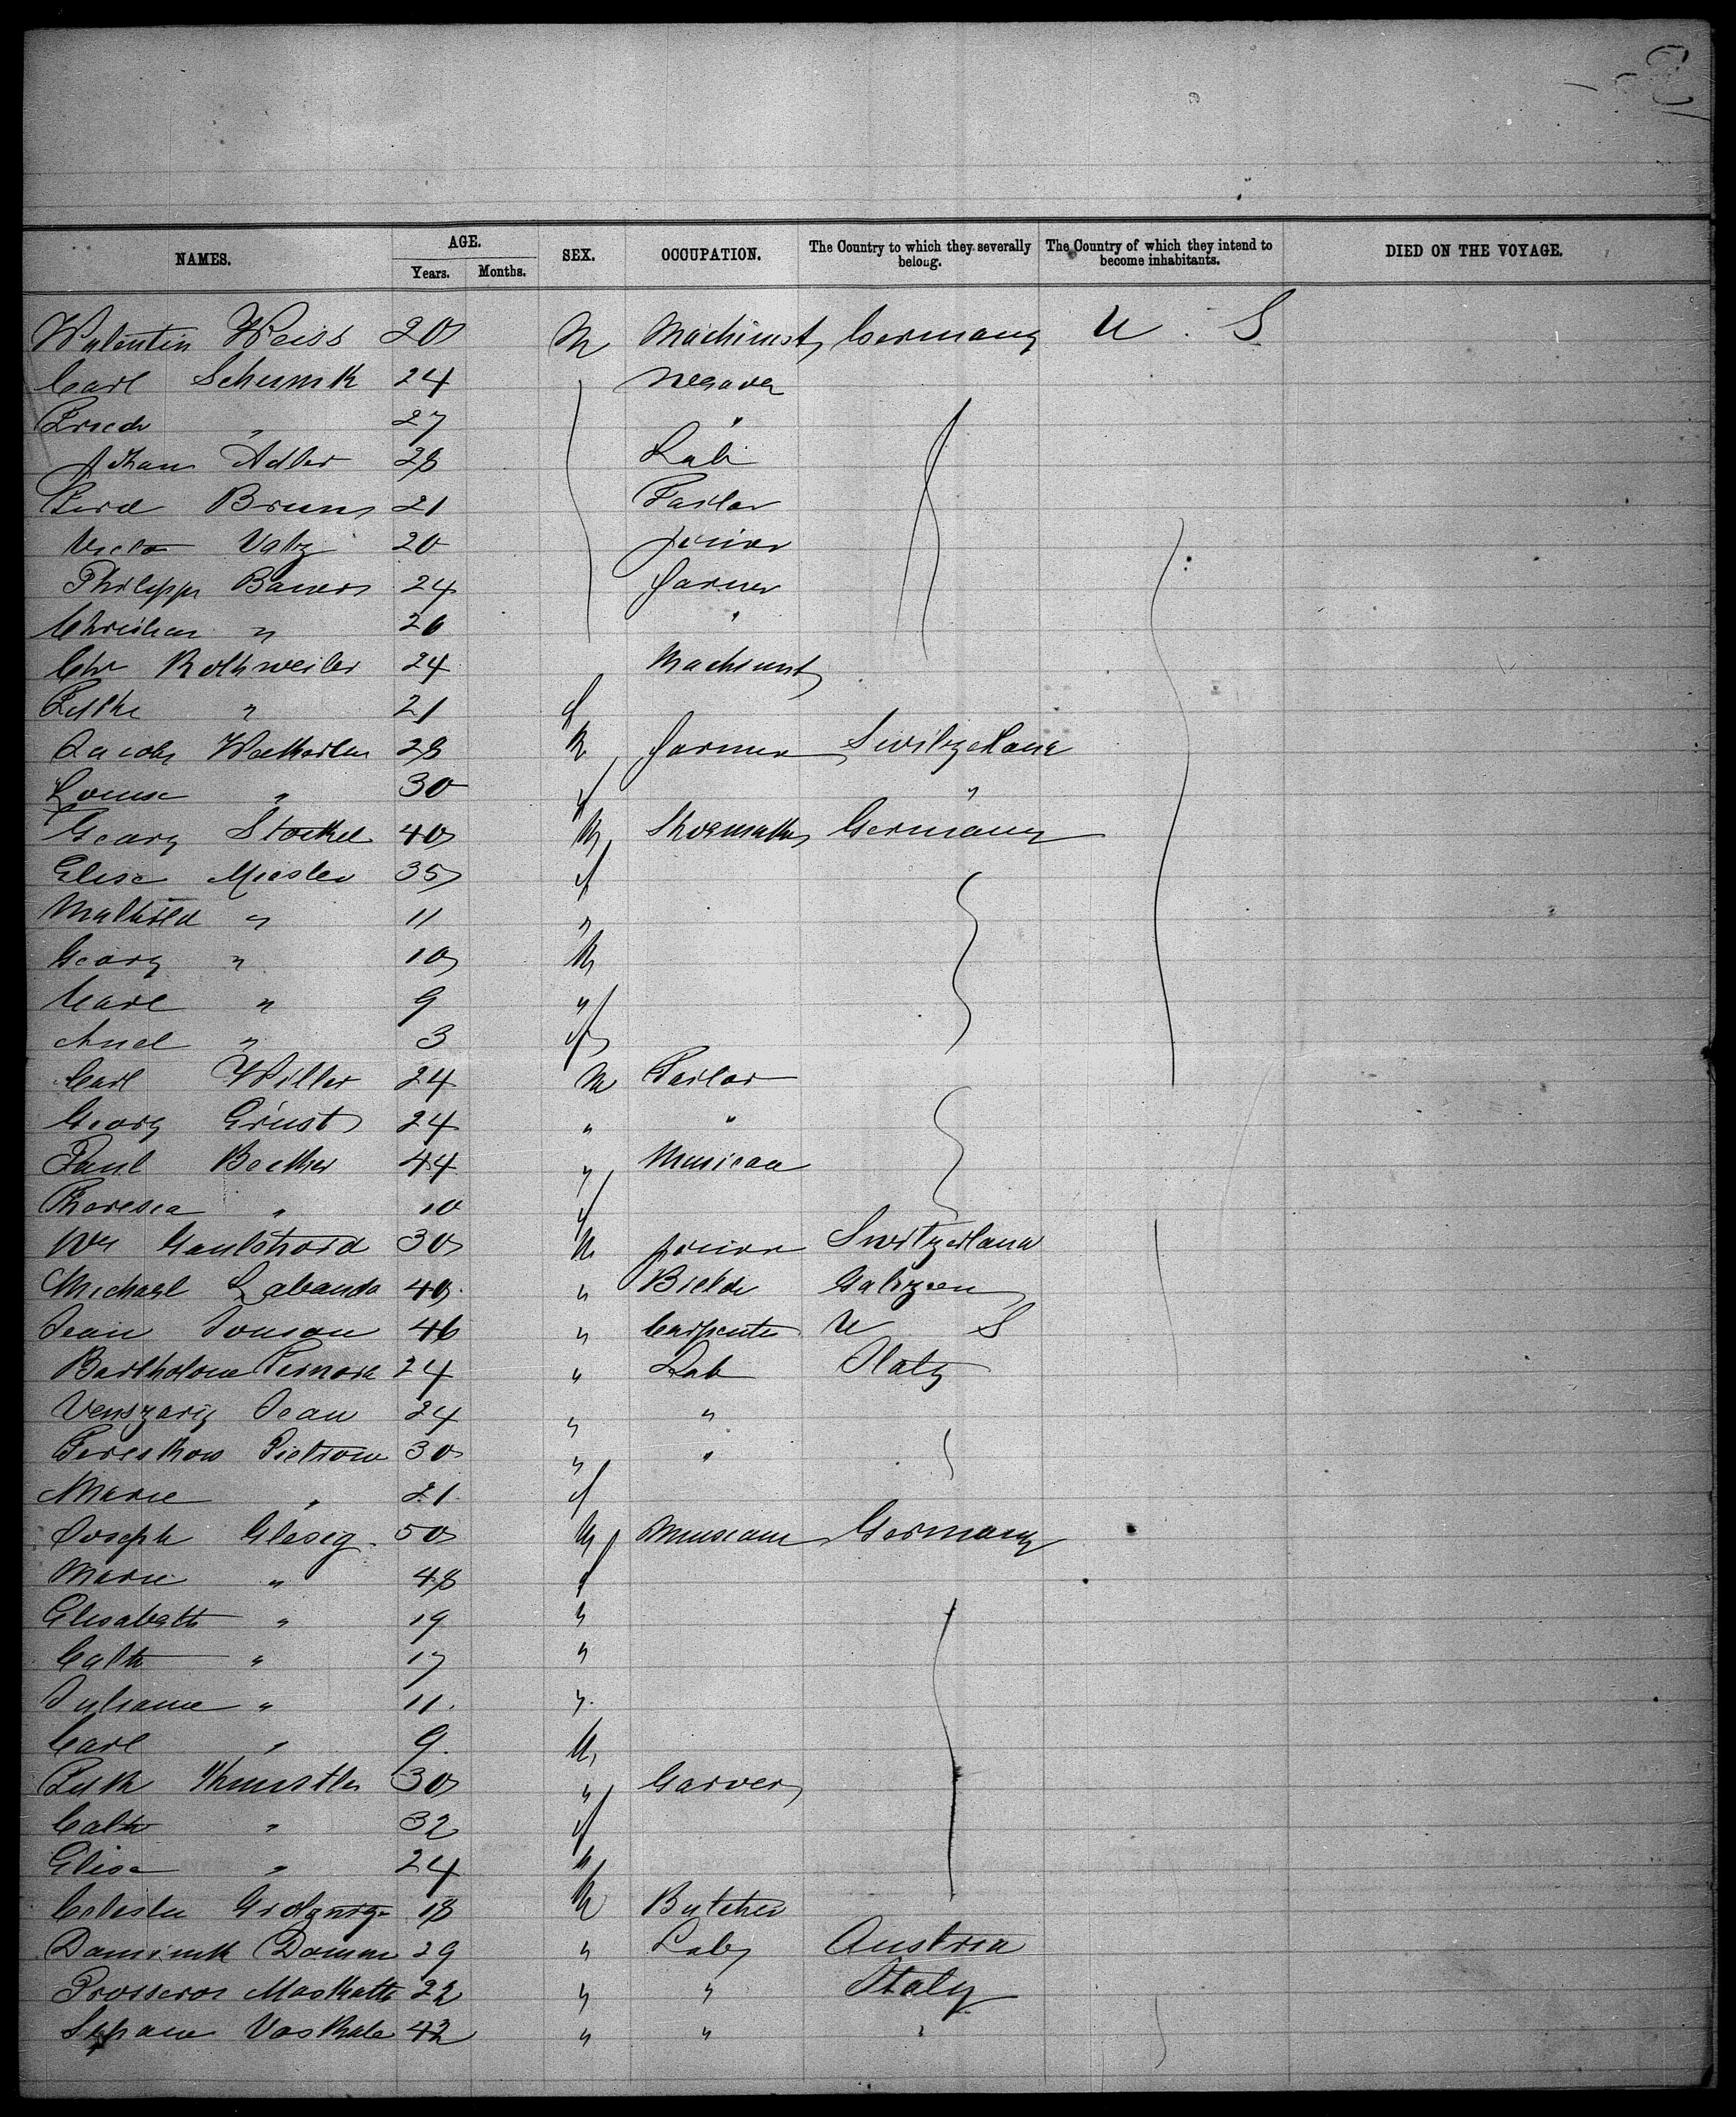 NAMES. AGE. Years. Months. SEX. OCCUPATION. The Country to which they severally belong. The Country of which they intend to become inhabitants. DIED ON THE VOYAGE.
Valentin Weiss 20 M Machinist Germany U. S
Carl Schumk 24 Weaver
Friedr " 27 "
Johan Adler 28 Lab
Ferd Bruns 21 Tailor
Victor Valz 20 Joiner
Philipp Bauers 24 Farmer
Christian " 26 "
Chr Rothweiler 24 Machinist
" 21 f
Jacob 28 M Farmer Switzerland
Louise " 30 f "
Georg Stockel 40 M Shoemaker Germany
Elise Miesler 35 f
Mathild " 11 "
Georg " 10 M
Carl " 9 "
" 3 f
Carl Willer 24 M Tailor
Georg Ernst 24 " "
Paul Boether 44 " Musican
Theresia " 10 f
Wm 30 M Joiner Switzerland
Michael Labanda 40 " Galizien
Jean Jonson 46 " Carpenter U S
Bartholome 24 " Lab Italy
Jean 24 " "
Pietrow 30 " "
Marie " 21 f
Joseph Glesig 50 M Musican Germany
Marie " 48 f
Elisabeth " 19 "
Cath " 17 "
Juliane " 11 "
Carl " 9 M
30 " Carver
Cath " 32 f
Elise " 24 "
18 M Butcher
Dominik Domm 29 " Lab Austria
22 " " Italy
42 " " "